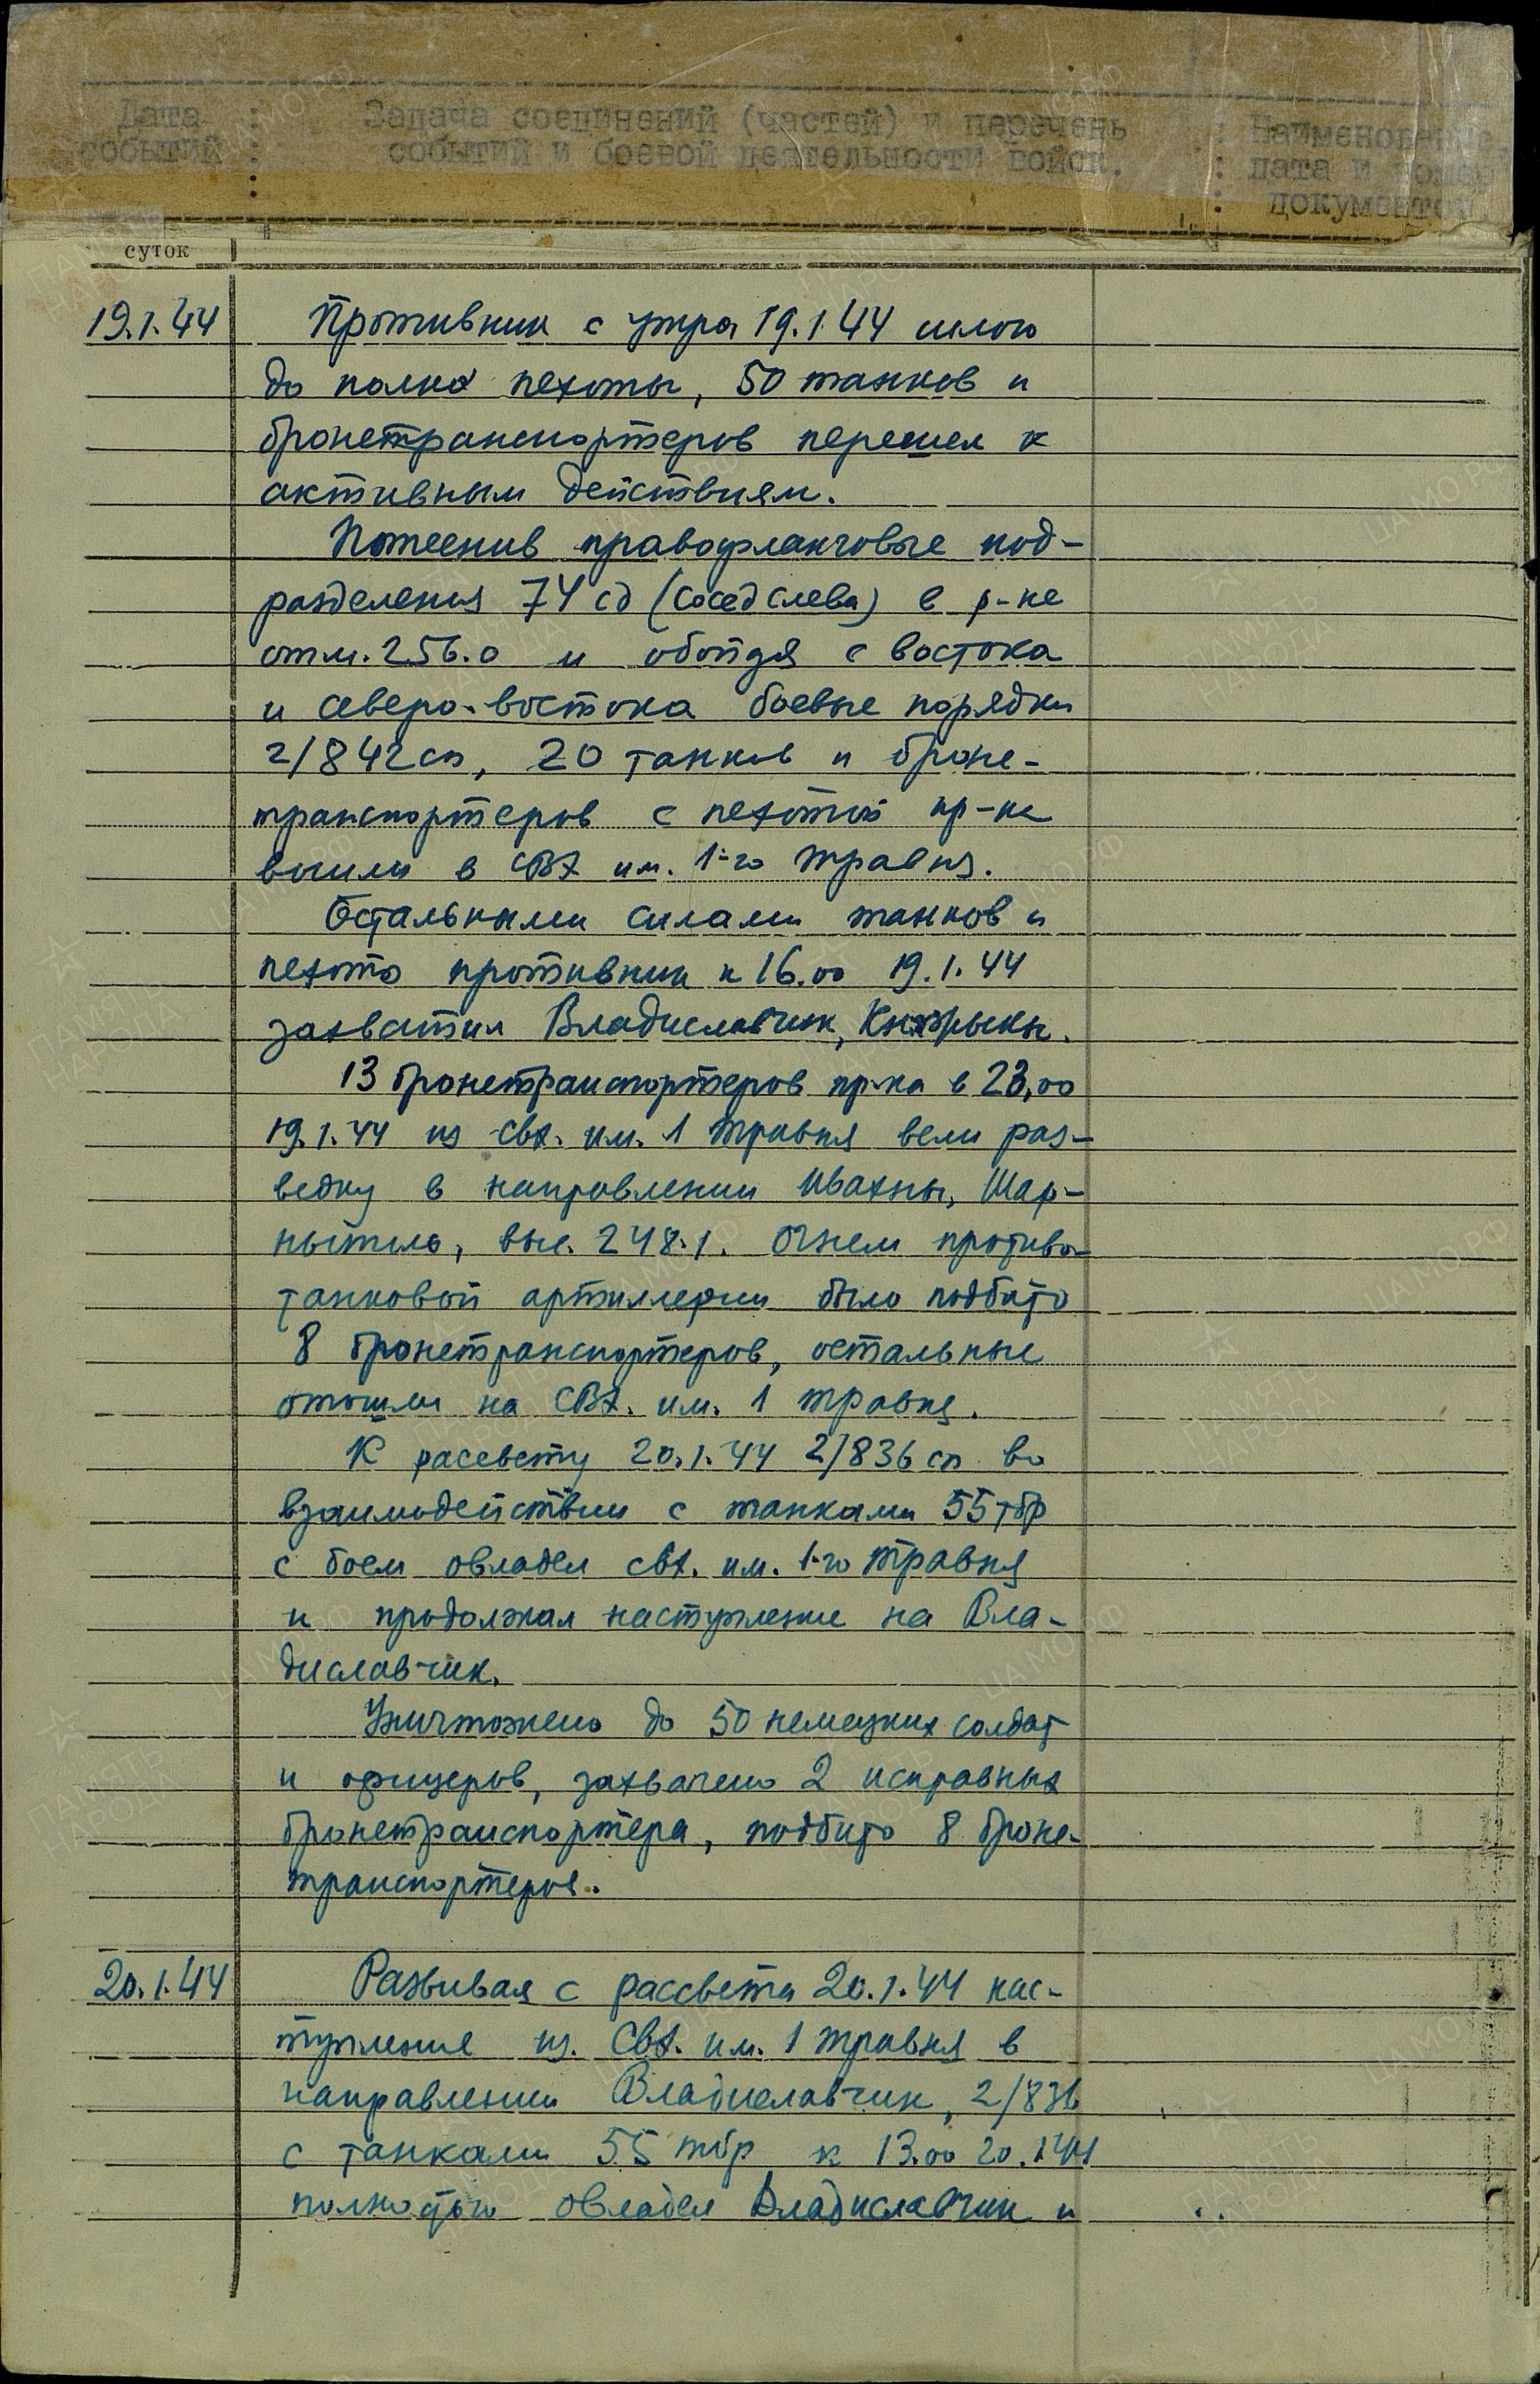 Дата событий : Задача соединений (частей) и перечень событий и боевой деятельности войск. : Наименование, дата и номер документов.
суток
19.1.44 Противник с утра 19.1.44 силою
до полка пехоты, 50 танков и
бронетранспортеров перешел к
активным действиям.
Потеснив правофланговые под-
разделения 74 сд (сосед слева) в р-не
отм. 256.0 и обойдя с востока
и северо-востока боевые порядки
2/842 сп, 20 танков и броне-
транспортеров с пехотой пр-ка
вышли в СВХ им. 1-го травня.
Остальными силами танков и
пехоты противник к 16.00 19.1.44
захватил Владиславчик,
13 бронетранспортеров пр-ка в 23,00
19.1.44 из свх. им. 1 травня вели раз-
ведку в направлении Ивахны, Шар-
ныполь, выс. 248.1. Огнем противо-
танковой артиллерии было подбито
8 бронетранспортеров, остальные
отошли на СВХ. им. 1 травня.
К рассвету 20.1.44 2/836 сп во
взаимодействии с танками 55 тбр
с боем овладел свх. им. 1-го травня
и продолжал наступление на Вла-
диславчик.
Уничтожено до 50 немецких солдат
и офицеров, захвачено 2 исправных
бронетранспортера, подбито 8 броне-
транспортеров.
20.1.44 Развивая с рассвета 20.1.44 нас-
тупление из. Свх. им. 1 травня в
направлении Владиславчик, 2/836
с танками 55 тбр к 13.00 20.1.44
полностью овладел Владиславчик и